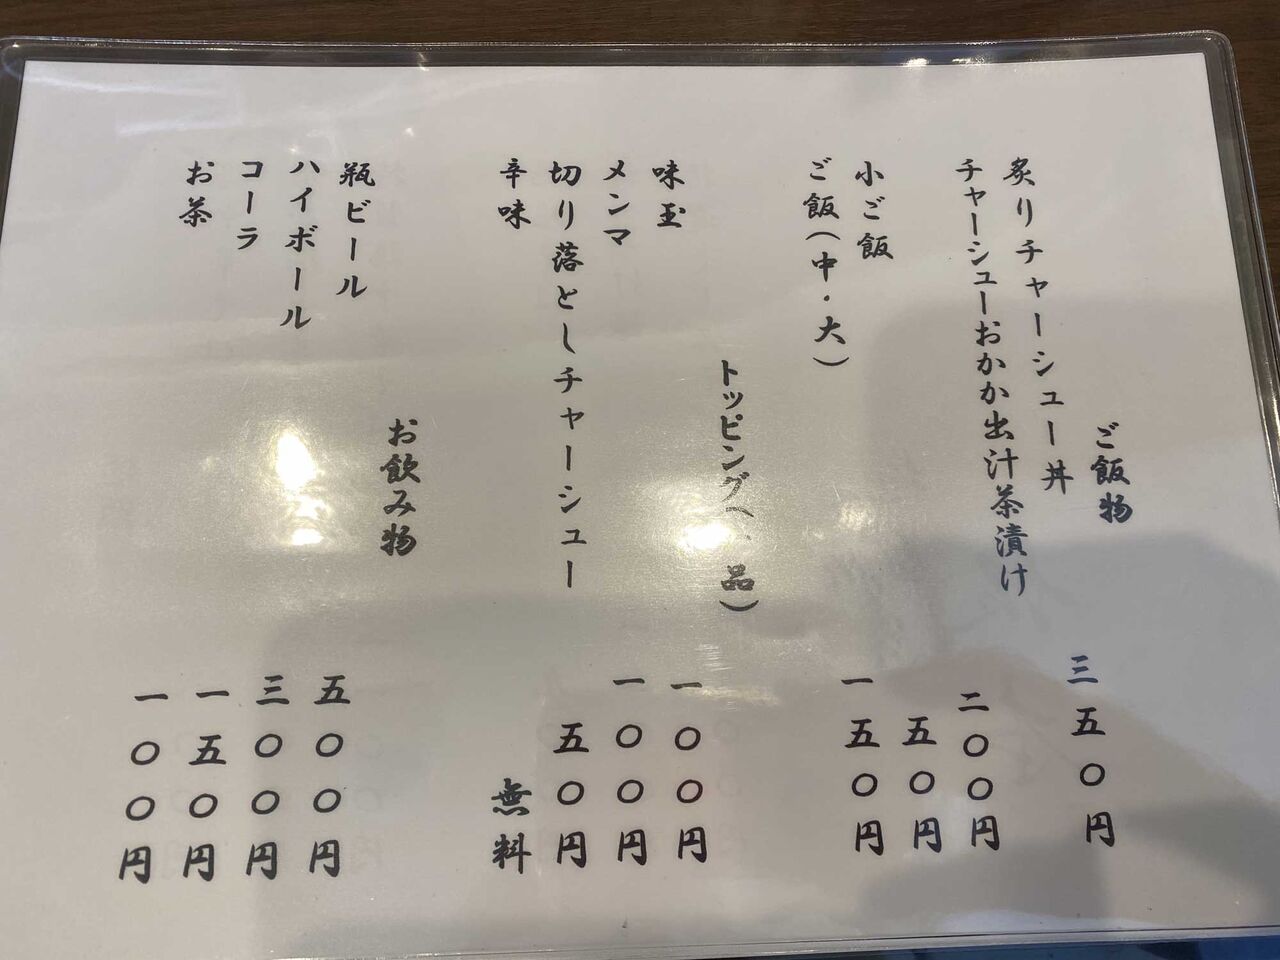 ご飯物
炙りチャーシュー丼 三五〇円
チャーシューおかか出汁茶漬け 二〇〇円
小ご飯 五〇円
ご飯(中・大) 一五〇円
トッピング( 品)
味玉 一〇〇円
メンマ 一〇〇円
切り落としチャーシュー 五〇円
辛味 無料
お飲み物
瓶ビール 五〇〇円
ハイボール 三〇〇円
コーラ 一五〇円
お茶 一〇〇円